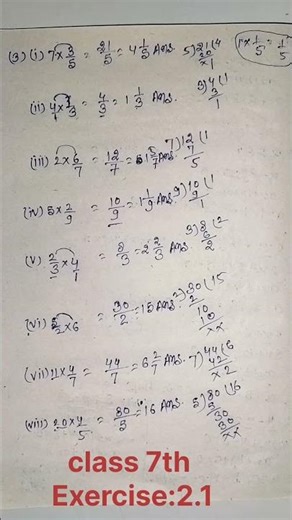 (3) (i) 7×3/5 = 21/5 = 4 1/5 Ans. 5)21(4 20 ×1 1×1/5 = 1/5
(ii) 4×1/3 = 4/3 = 1 1/3 Ans. 3)4(1 3 1
(iii) 2×6/7 = 12/7 = 1 5/7 Ans. 7)12(1 7 5
(iv) 5×2/9 = 10/9 = 1 1/9 Ans. 9)10(1 9 1
(v) 2/3×4/1 = 8/3 = 2 2/3 Ans. 3)8(2 6 2
(vi) 5/2×6 = 30/2 = 15 Ans. 2)30(15 2 10 10 ××
(vii) 11×4/7 = 44/7 = 6 2/7 Ans. 7)44(6 42 ×2
(viii) 20×4/5 = 80/5 = 16 Ans. 5)80(16 5 30 30 ××
class 7th
Exercise:2.1